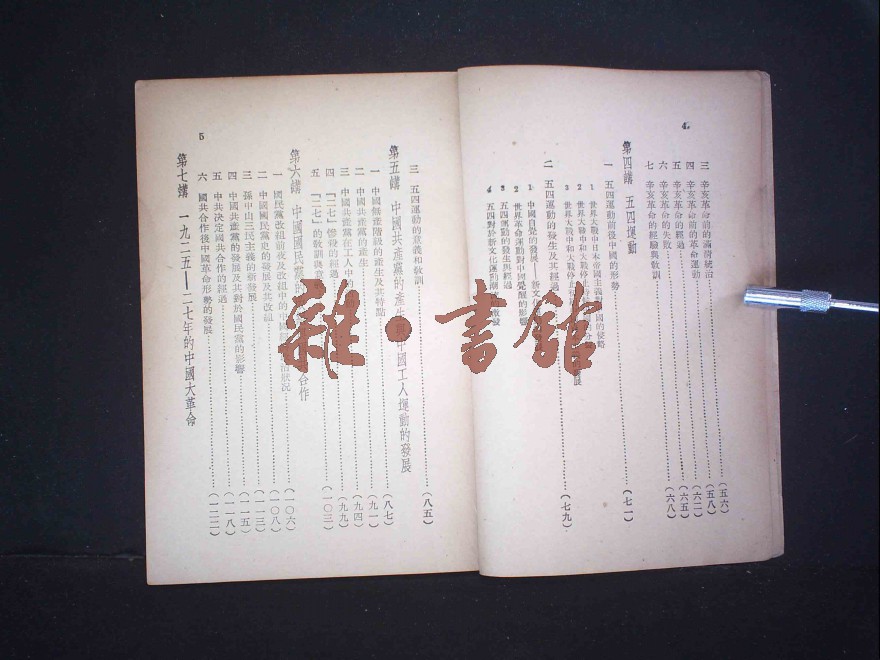 4
三 辛亥革命前的滿清統治(五六)
四 辛亥革命前的革命運動(五八)
五 辛亥革命的經過(六二)
六 辛亥革命的失敗(六五)
七 辛亥革命的經驗與敎訓(六八)
第四講 五四運動
一 五四運動前後中國的形勢(七一)
1 世界大戰中日本帝國主義對 國的侵略
2 世界大戰中和大戰停止
3 世界大戰中和大戰 展
二 五四運動的發生及其經過(七九)
1 中國自覺的發展——新文
2 世界革命運動對中國覺醒的影響
3 五四運動的發生與經過
4 五四對於新文化運動
三 五四運動的意義和敎訓(八五)
5
第五講 中國共產黨的產生 中國工人運動的發展
一 中國無產階級的產生及其特點(八七)
二 中國共產黨的產生(九一)
三 中國共產黨在工人中的(九四)
四 「二七」慘殺的經過(九九)
五 「二七」的敎訓與意義(一〇三)
第六講 中國國民黨的 合作
一 國民黨改組前夜及改組中的中國 狀況(一〇六)
二 中國國民黨史的發展及其改組(一〇八)
三 孫中山三民主義的新發展(一一三)
四 中國共產黨的發展及其對於國民黨的影響(一一五)
五 中共決定國共合作的經過(一一八)
六 國共合作後中國革命形勢的發展(一二二)
第七講 一九二五—二七年的中國大革命
雜·書館